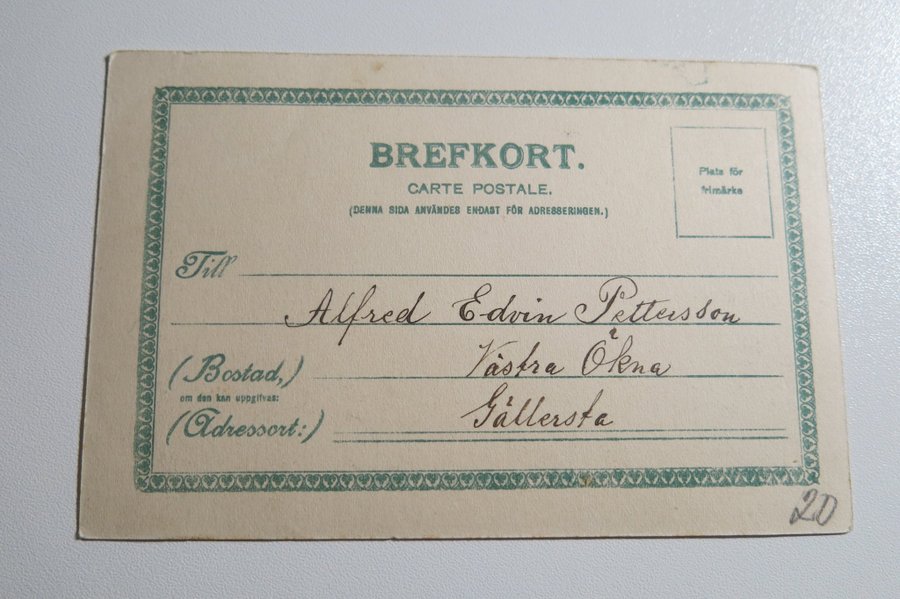 BREFKORT.
CARTE POSTALE.
(DENNA SIDA ANVÄNDES ENDAST FÖR ADRESSERINGEN.)
Plats för
frimärke
Till
Alfred Edvin Pettersson
(Bostad,) Västra Ökna
om den kan uppgifvas:
(Adressort:) Gällersta
20